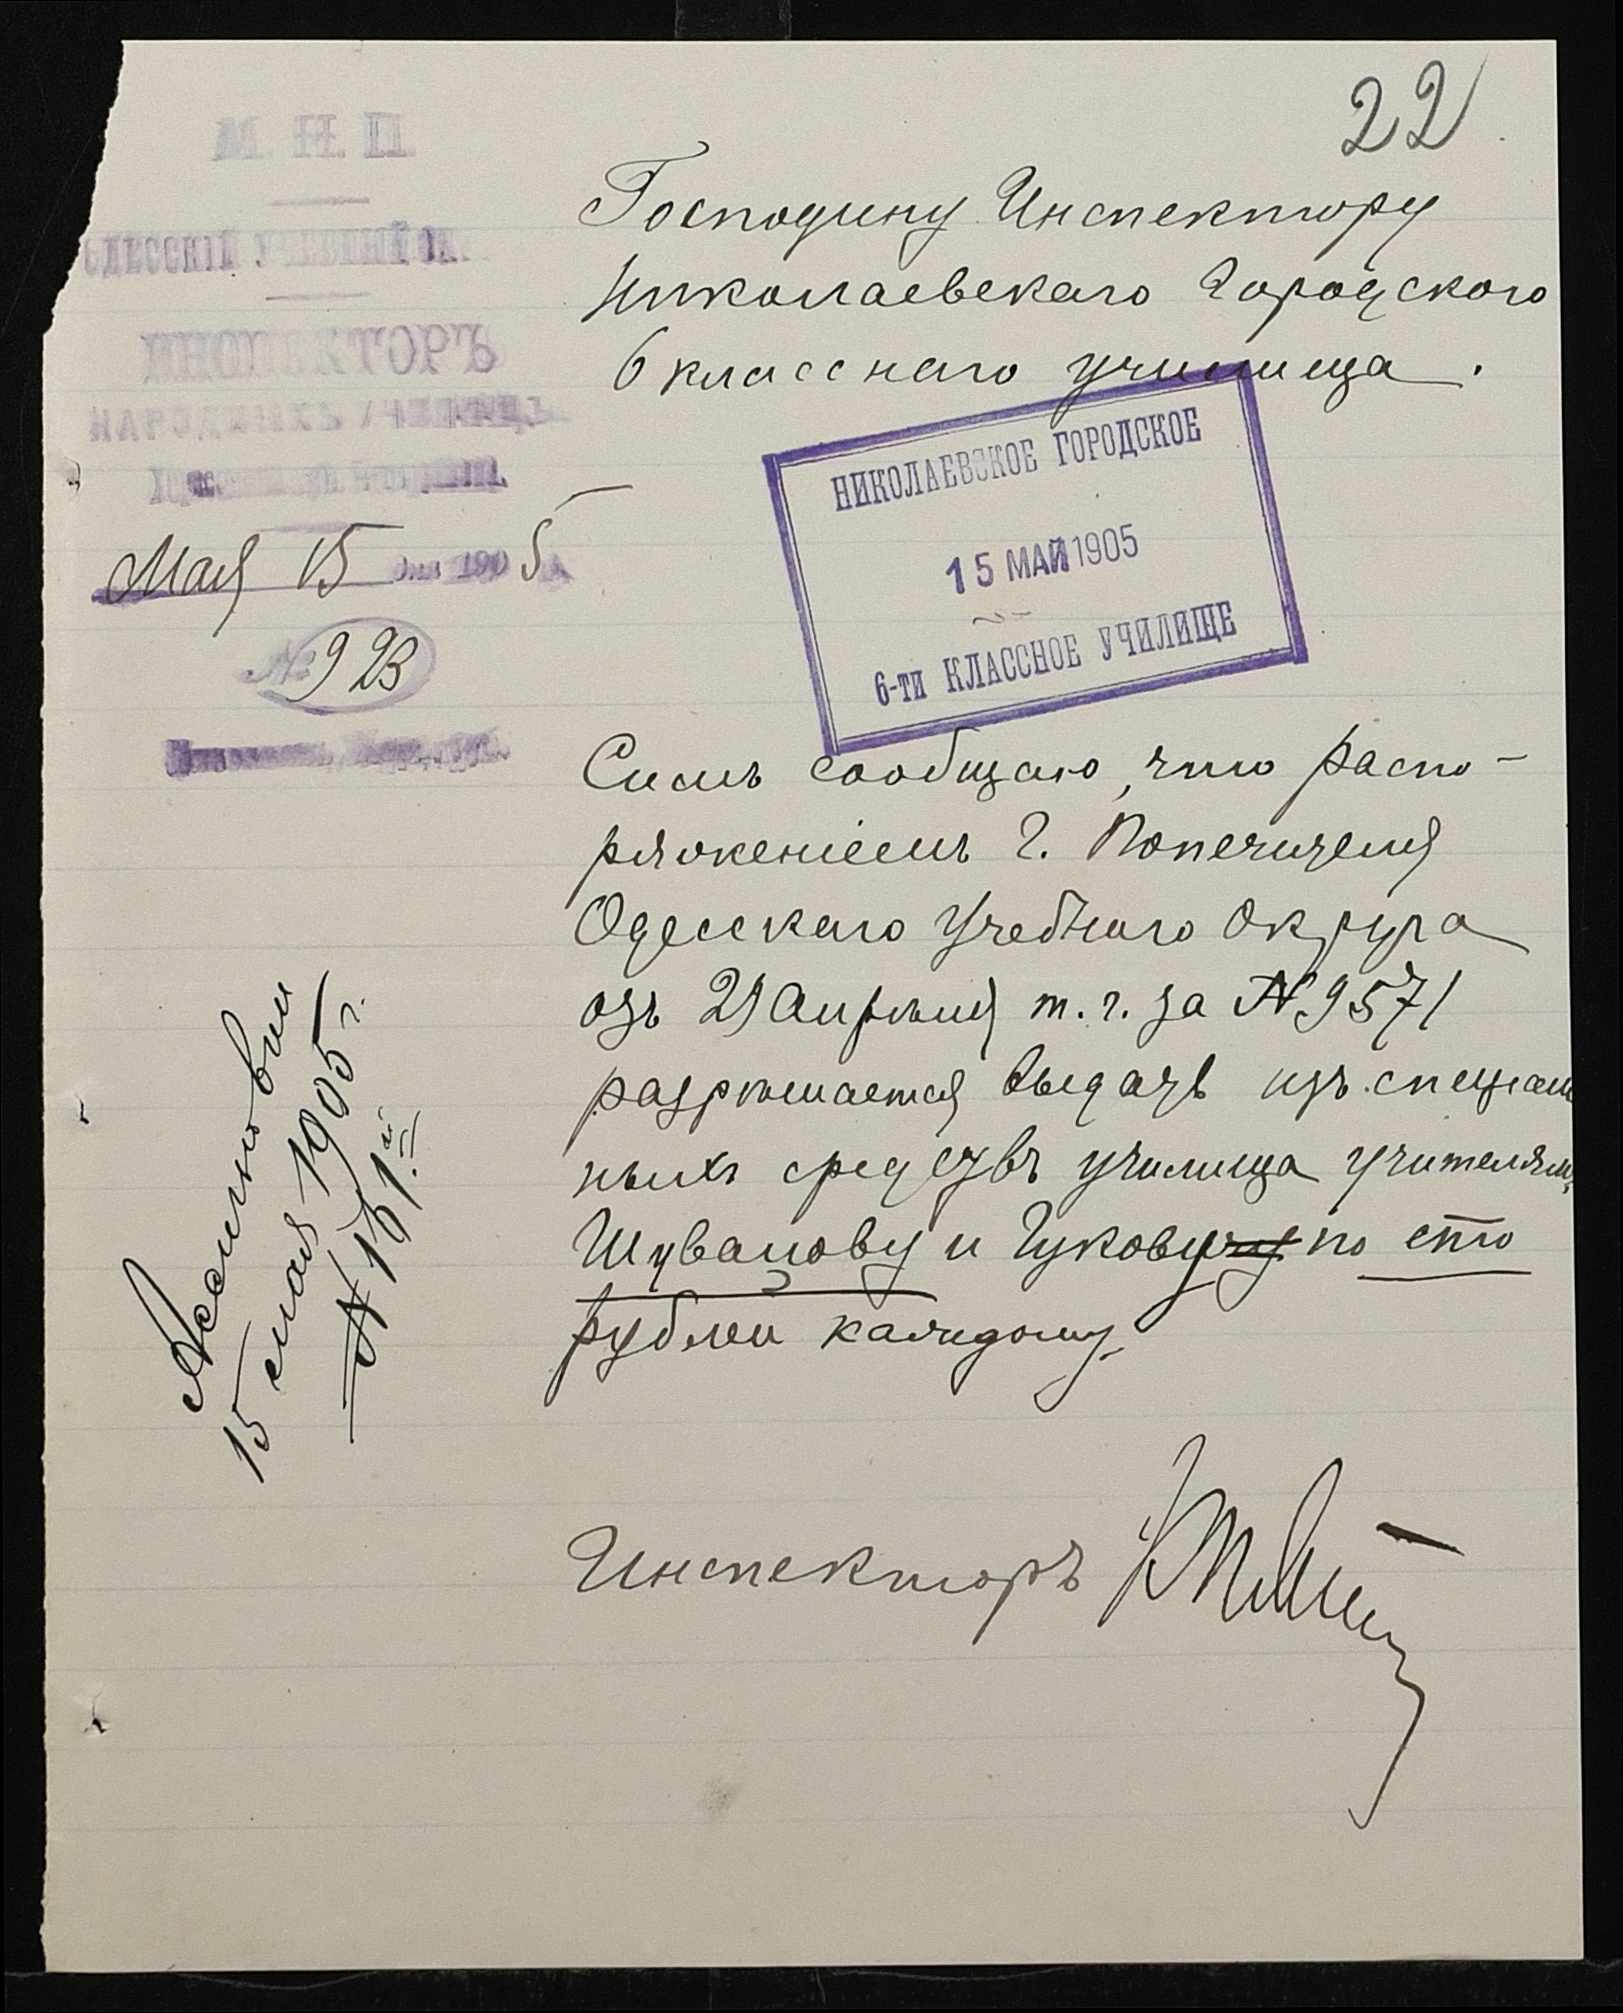 22
М. Н. П.
ОДЕССКІЙ УЧЕБНЫЙ ОК.
ИНСПЕКТОРЪ
НАРОДНЫХЪ УЧИЛИЩЪ
Мая 15 дня 1905
№ 923
Господину Инспектору
Николаевскаго Городского
6 класснаго училища.
НИКОЛАЕВСКОЕ ГОРОДСКОЕ
15 МАЙ 1905
6-ТИ КЛАССНОЕ УЧИЛИЩЕ
Симъ сообщаю, что распо-
ряженіемъ Г. Попечителя
Одесскаго Учебнаго Округа
отъ 29 Апрѣля т. г. за № 9571
разрѣшается выдать изъ спеціаль
ныхъ средствъ училища учителямъ
Шувалову и Гукову по сто
рублей каждому.
Инспекторъ
15 мая 1905 г.